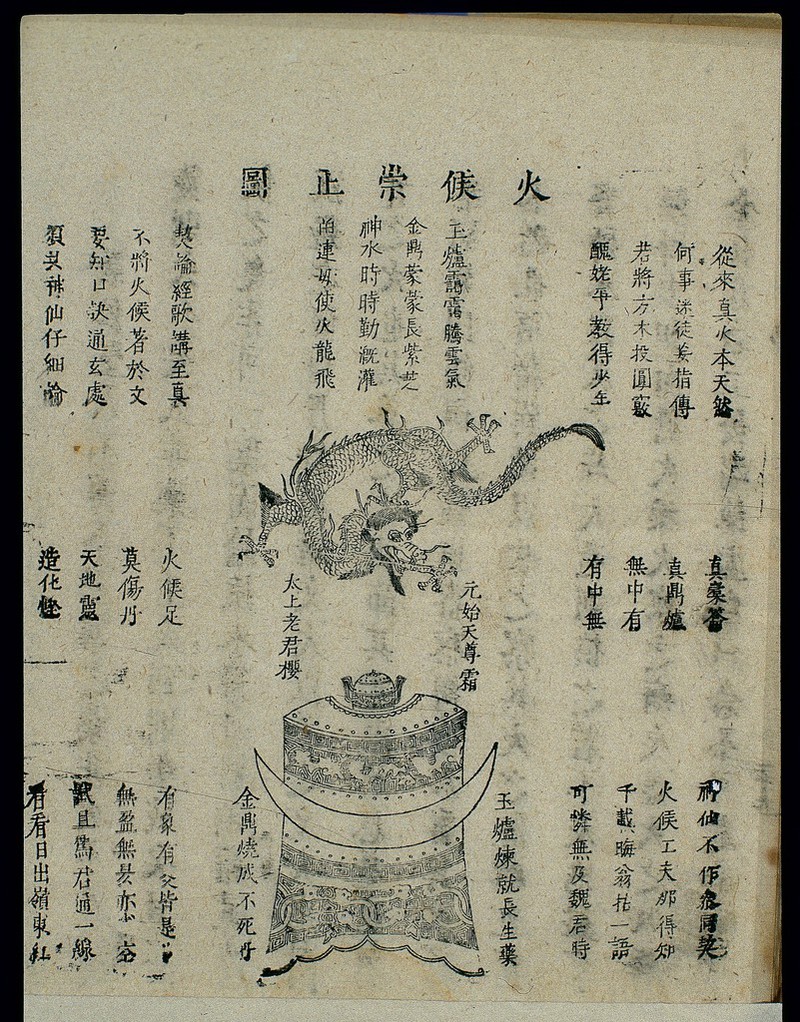 火候崇正圖
從來真火本天然
何事迷徒妄指傳
若將方木投圓竅
醜姥乎教得少年
玉爐靄靄騰雲氣
金鼎蒙蒙長紫芝
神水時時勤溉灌
留連毋使火龍飛
契論經歌講至真
不將火候著於文
要知口訣通玄處
須共神仙仔細論
真橐籥
真鼎爐
無中有
有中無
元始天尊
太上老君
火候足
莫傷丹
天地靈
造化慳
神仙不作參同契
火候工夫那得知
千載晦翁拈一語
可憐無及魏君時
玉爐煉就長生藥
金鼎燒成不死丹
有象有爻皆是
無盈無昃亦非空
試且為君通一線
看看日出嶺東紅